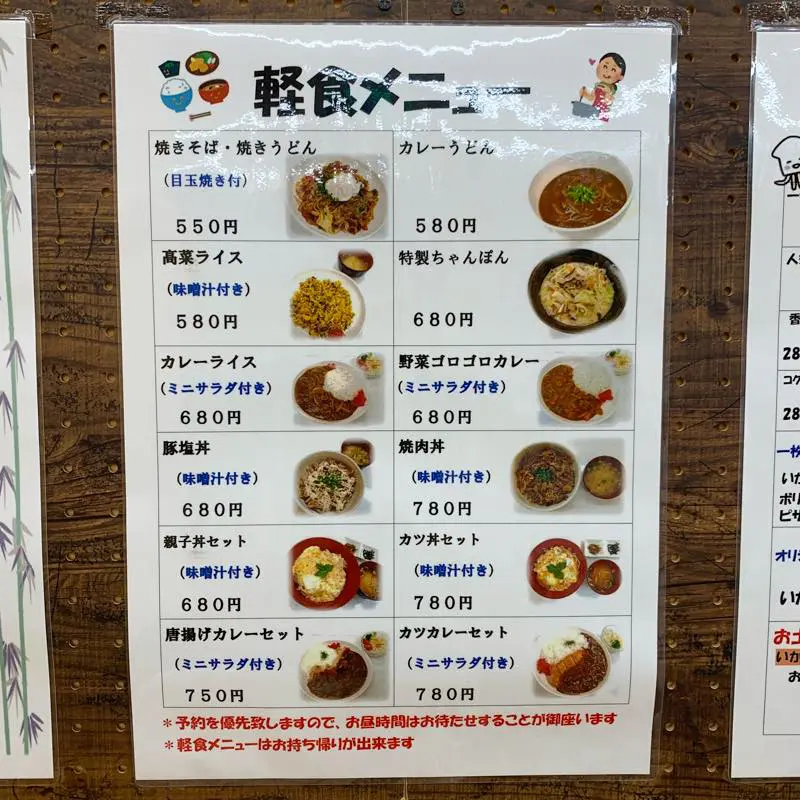 軽食メニュー
焼きそば・焼きうどん
(目玉焼き付)
550円
カレーうどん
580円
高菜ライス
(味噌汁付き)
580円
特製ちゃんぽん
680円
カレーライス
(ミニサラダ付き)
680円
野菜ゴロゴロカレー
(ミニサラダ付き)
680円
豚塩丼
(味噌汁付き)
680円
焼肉丼
(味噌汁付き)
780円
親子丼セット
(味噌汁付き)
680円
カツ丼セット
(味噌汁付き)
780円
唐揚げカレーセット
(ミニサラダ付き)
750円
カツカレーセット
(ミニサラダ付き)
780円
*予約を優先致しますので、お昼時間はお待たせすることが御座います
*軽食メニューはお持ち帰りが出来ます
28
コク
28
一枚
いか
ピザ
オリジ
いか
お土
いか
お